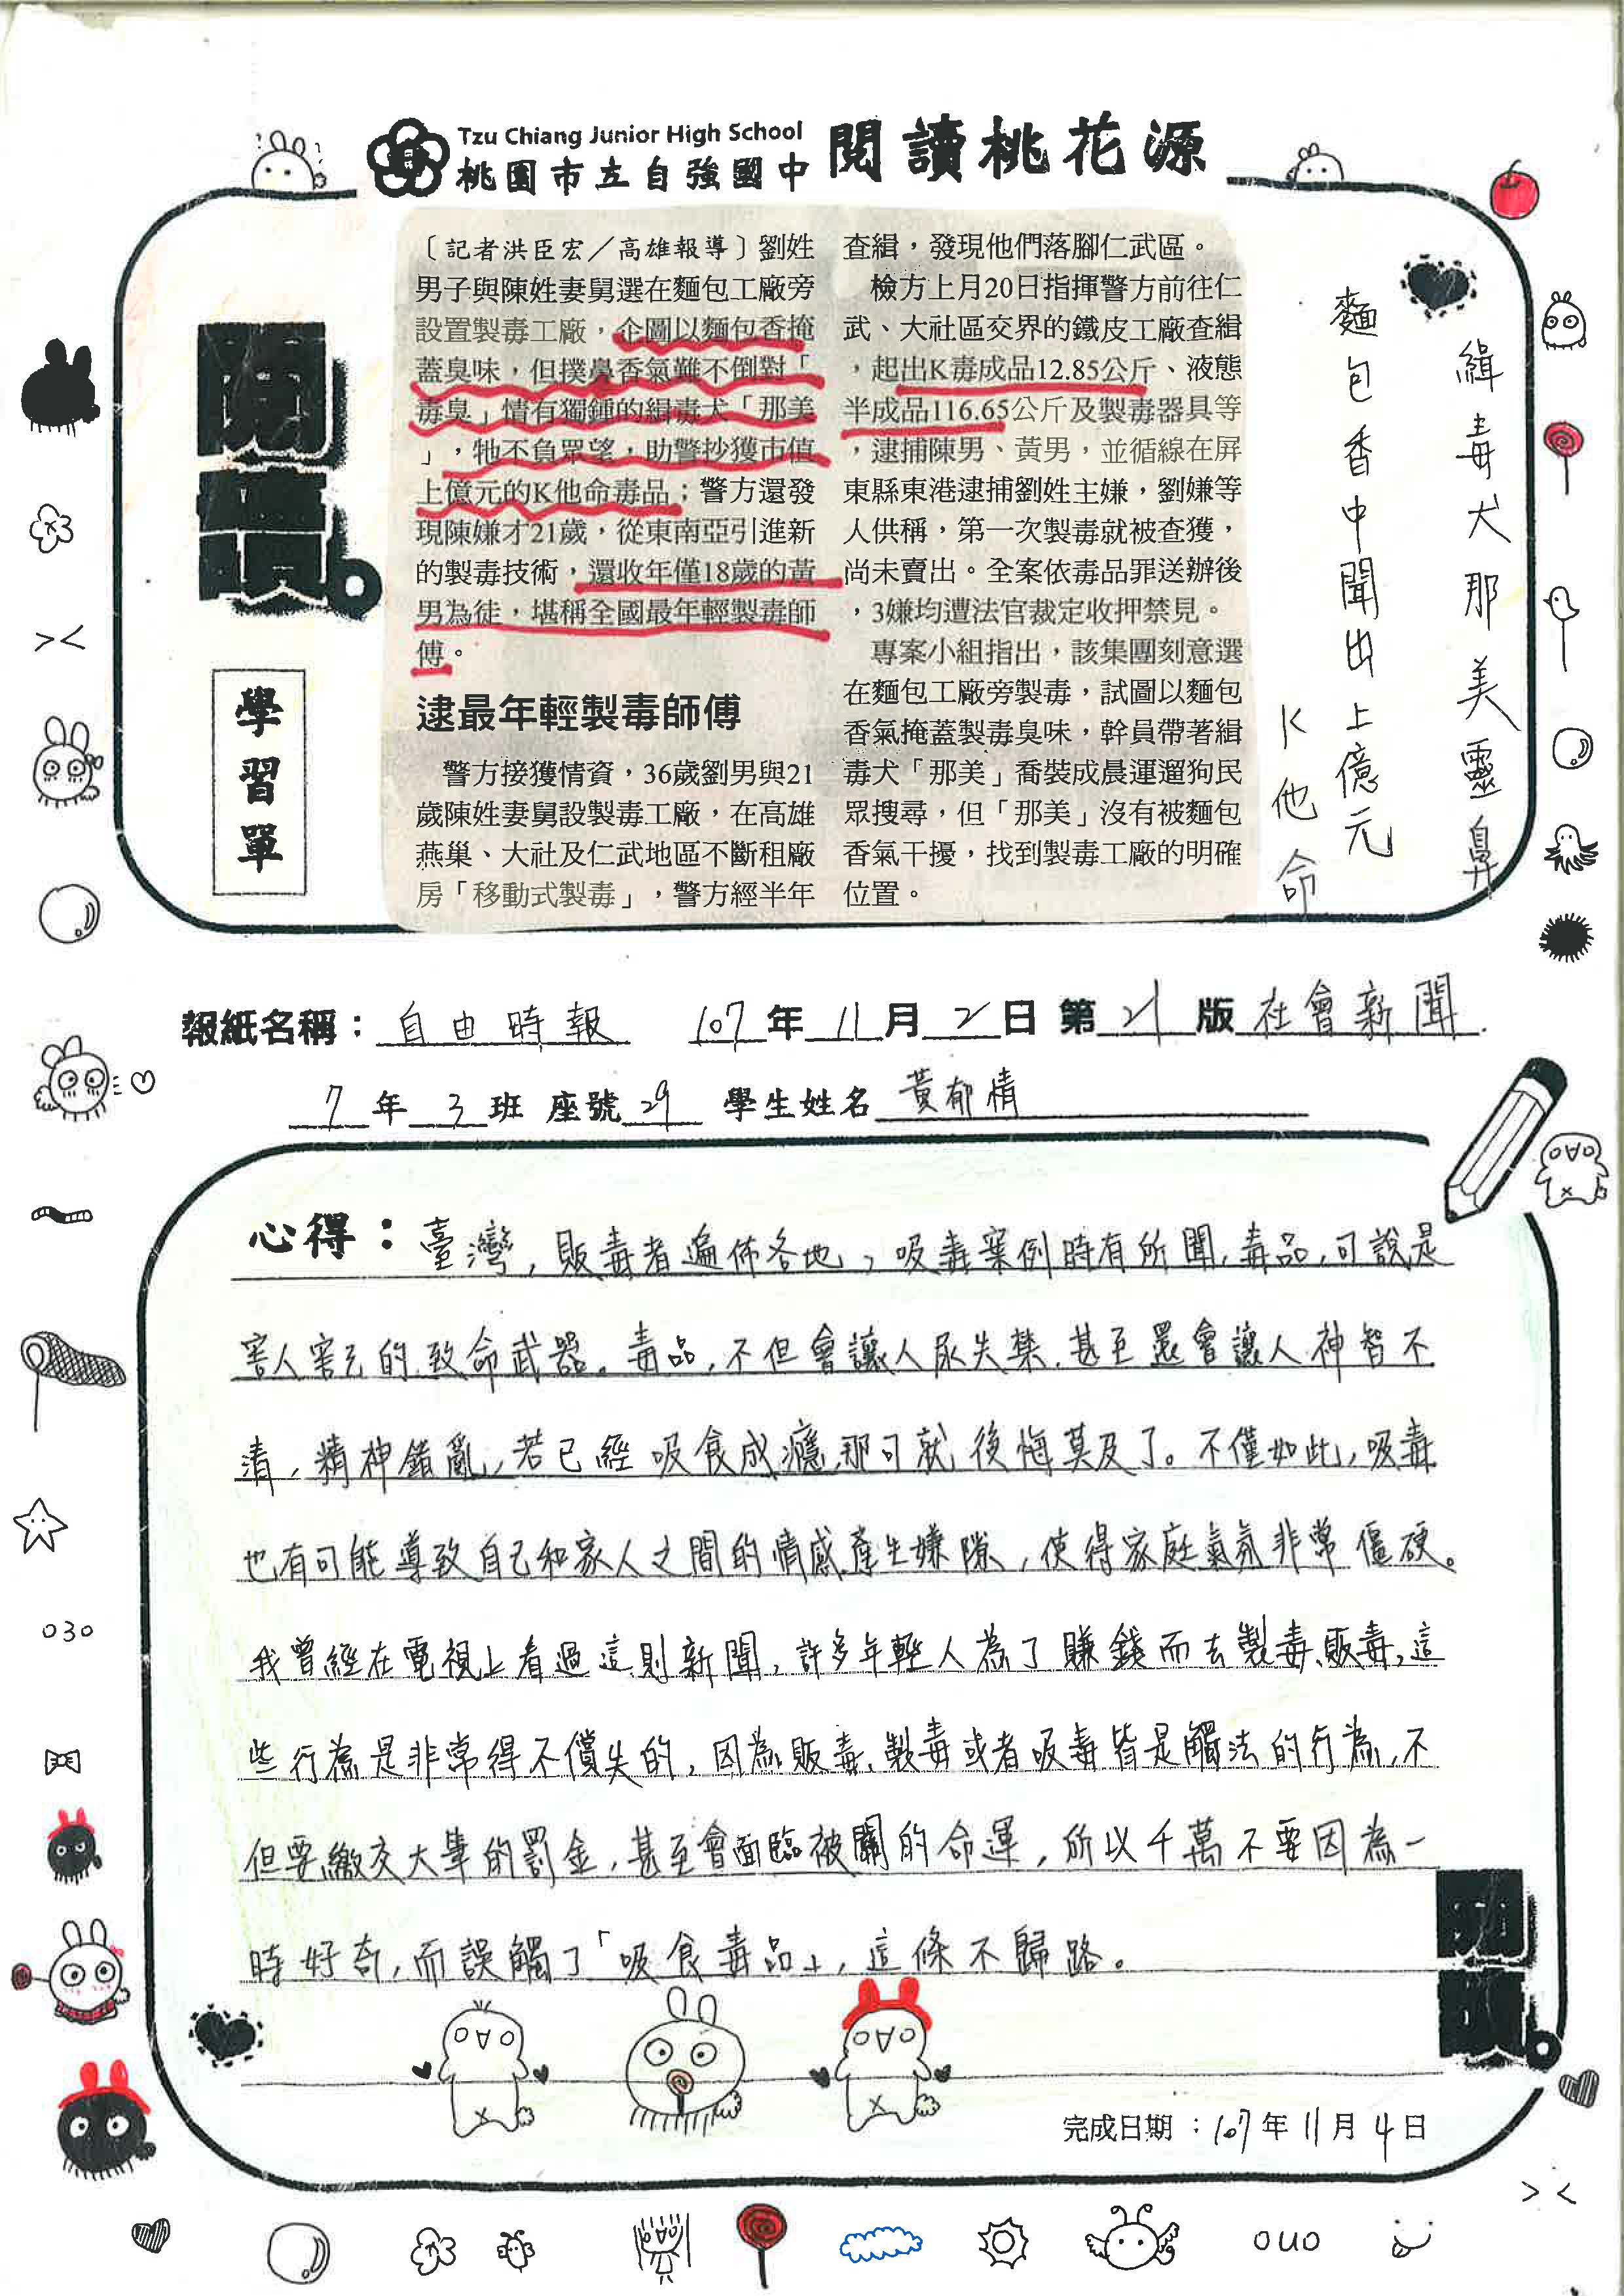 Tzu Chiang Junior High School
桃園市立自強國中
閱讀桃花源
閱讀。
學習單
〔記者洪臣宏／高雄報導〕劉姓
男子與陳姓妻舅選在麵包工廠旁
設置製毒工廠，企圖以麵包香掩
蓋臭味，但撲鼻香氣難不倒對「
毒臭」情有獨鍾的緝毒犬「那美
」，牠不負眾望，助警抄獲市值
上億元的K他命毒品；警方還發
現陳嫌才21歲，從東南亞引進新
的製毒技術，還收年僅18歲的黃
男為徒，堪稱全國最年輕製毒師
傅。
逮最年輕製毒師傅
警方接獲情資，36歲劉男與21
歲陳姓妻舅設製毒工廠，在高雄
燕巢、大社及仁武地區不斷租廠
房「移動式製毒」，警方經半年
查緝，發現他們落腳仁武區。
檢方上月20日指揮警方前往仁
武、大社區交界的鐵皮工廠查緝
，起出K毒成品12.85公斤、液態
半成品116.65公斤及製毒器具等
，逮捕陳男、黃男，並循線在屏
東縣東港逮捕劉姓主嫌，劉嫌等
人供稱，第一次製毒就被查獲，
尚未賣出。全案依毒品罪送辦後
，3嫌均遭法官裁定收押禁見。
專案小組指出，該集團刻意選
在麵包工廠旁製毒，試圖以麵包
香氣掩蓋製毒臭味，幹員帶著緝
毒犬「那美」喬裝成晨運遛狗民
眾搜尋，但「那美」沒有被麵包
香氣干擾，找到製毒工廠的明確
位置。
緝毒犬那美靈鼻
麵包香中聞出上億元
K他命
報紙名稱：自由時報 107年11月2日 第21版 社會新聞
7年3班 座號29 學生姓名 黃郁情
心得：臺灣，販毒者遍佈各地，吸毒案例時有所聞，毒品，可說是
害人害己的致命武器。毒品，不但會讓人尿失禁，甚至還會讓人神智不
清，精神錯亂，若已經吸食成癮，那可就後悔莫及了。不僅如此，吸毒
也有可能導致自己和家人之間的情感產生嫌隙，使得家庭氣氛非常僵硬。
我曾經在電視上看過這則新聞，許多年輕人為了賺錢而去製毒、販毒，這
些行為是非常得不償失的，因為販毒、製毒或者吸毒皆是觸法的行為，不
但要繳交大筆的罰金，甚至會面臨被關的命運，所以千萬不要因為一
時好奇，而誤觸了「吸食毒品」，這條不歸路。
閱讀。
完成日期：107年11月4日
o3o
ouo